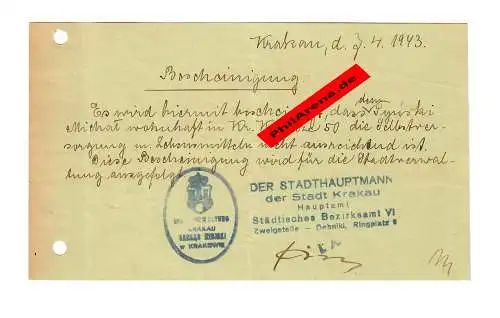 Krakau, d. 7. 4. 1943.
Bescheinigung
Es wird hiermit bescheinigt, dass dem Tyński
Michał wohnhaft in Kr. 50 die Selbstver-
sorgung m. Lebensmitteln nicht ausreichend ist.
Diese Bescheinigung wird für die Stadtverwal-
tung ausgefolgt
PhilArena.de
KRAKAU
ZARZĄD MIEJSKI
W KRAKOWIE
DER STADTHAUPTMANN
der Stadt Krakau
Hauptamt
Städtisches Bezirksamt VI
Zweigstelle – Dehniki, Ringplatz